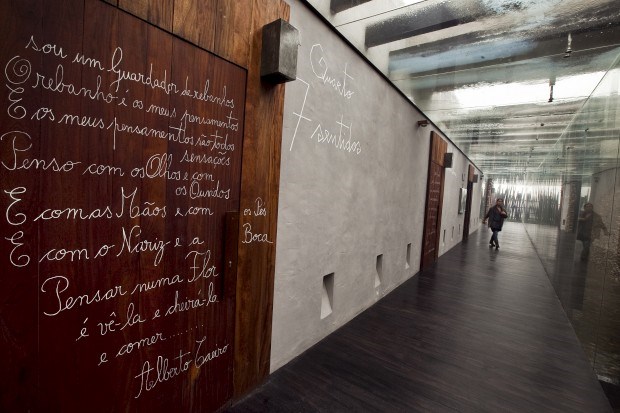 sou um Guardador de rebanhos
O rebanho é os meus pensamentos
E os meus pensamentos são todos
sensações
Penso com os Olhos e com
os Ouvidos
E com as Mãos e com
os Pés
E com o Nariz e a
Boca
Pensar numa Flor
é vê-la e cheirá-la
e comer........
Alberto Caeiro
Quarto
7 sentidos